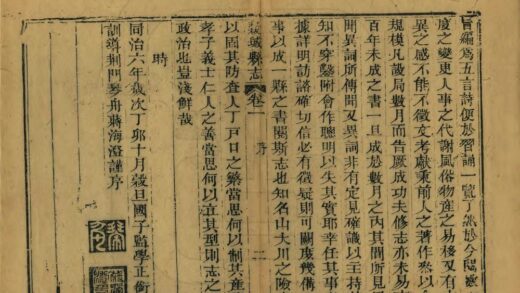 旨編為五言詩便於習誦一覽了然於今
度之變更人事之代謝風俗物產之易後又有
異之感不能不徵文考獻秉前人之著作然以
規模凡設局數月而告厥成功夫修志亦未易
百年未成之書一旦成於數月之內其間所見
聞異詞所傳聞又異詞非有定見確識以主持
知不穿鑿附會作聰明以失其實耶幸任其事
據詳明訪諮確切信必有徵疑則可闕庶幾傳
事以成一縣之書閱斯志也知名山大川之險
穀城縣志 卷一 序 二
以固其防查人丁戶口之繁當思何以制其產
孝子義士仁人之善當思何以立其型則志之
政治也豈淺鮮哉
同治六年歲次丁卯十月穀旦國子監學正銜
訓導荆門琴舟蔣海澄謹序